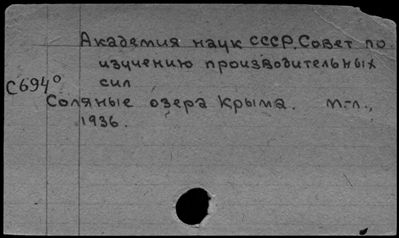 Академия наук СССР. Совет по
изучению производительных
сил
С694°
Соляные озера Крыма. М.-Л.,
1936.